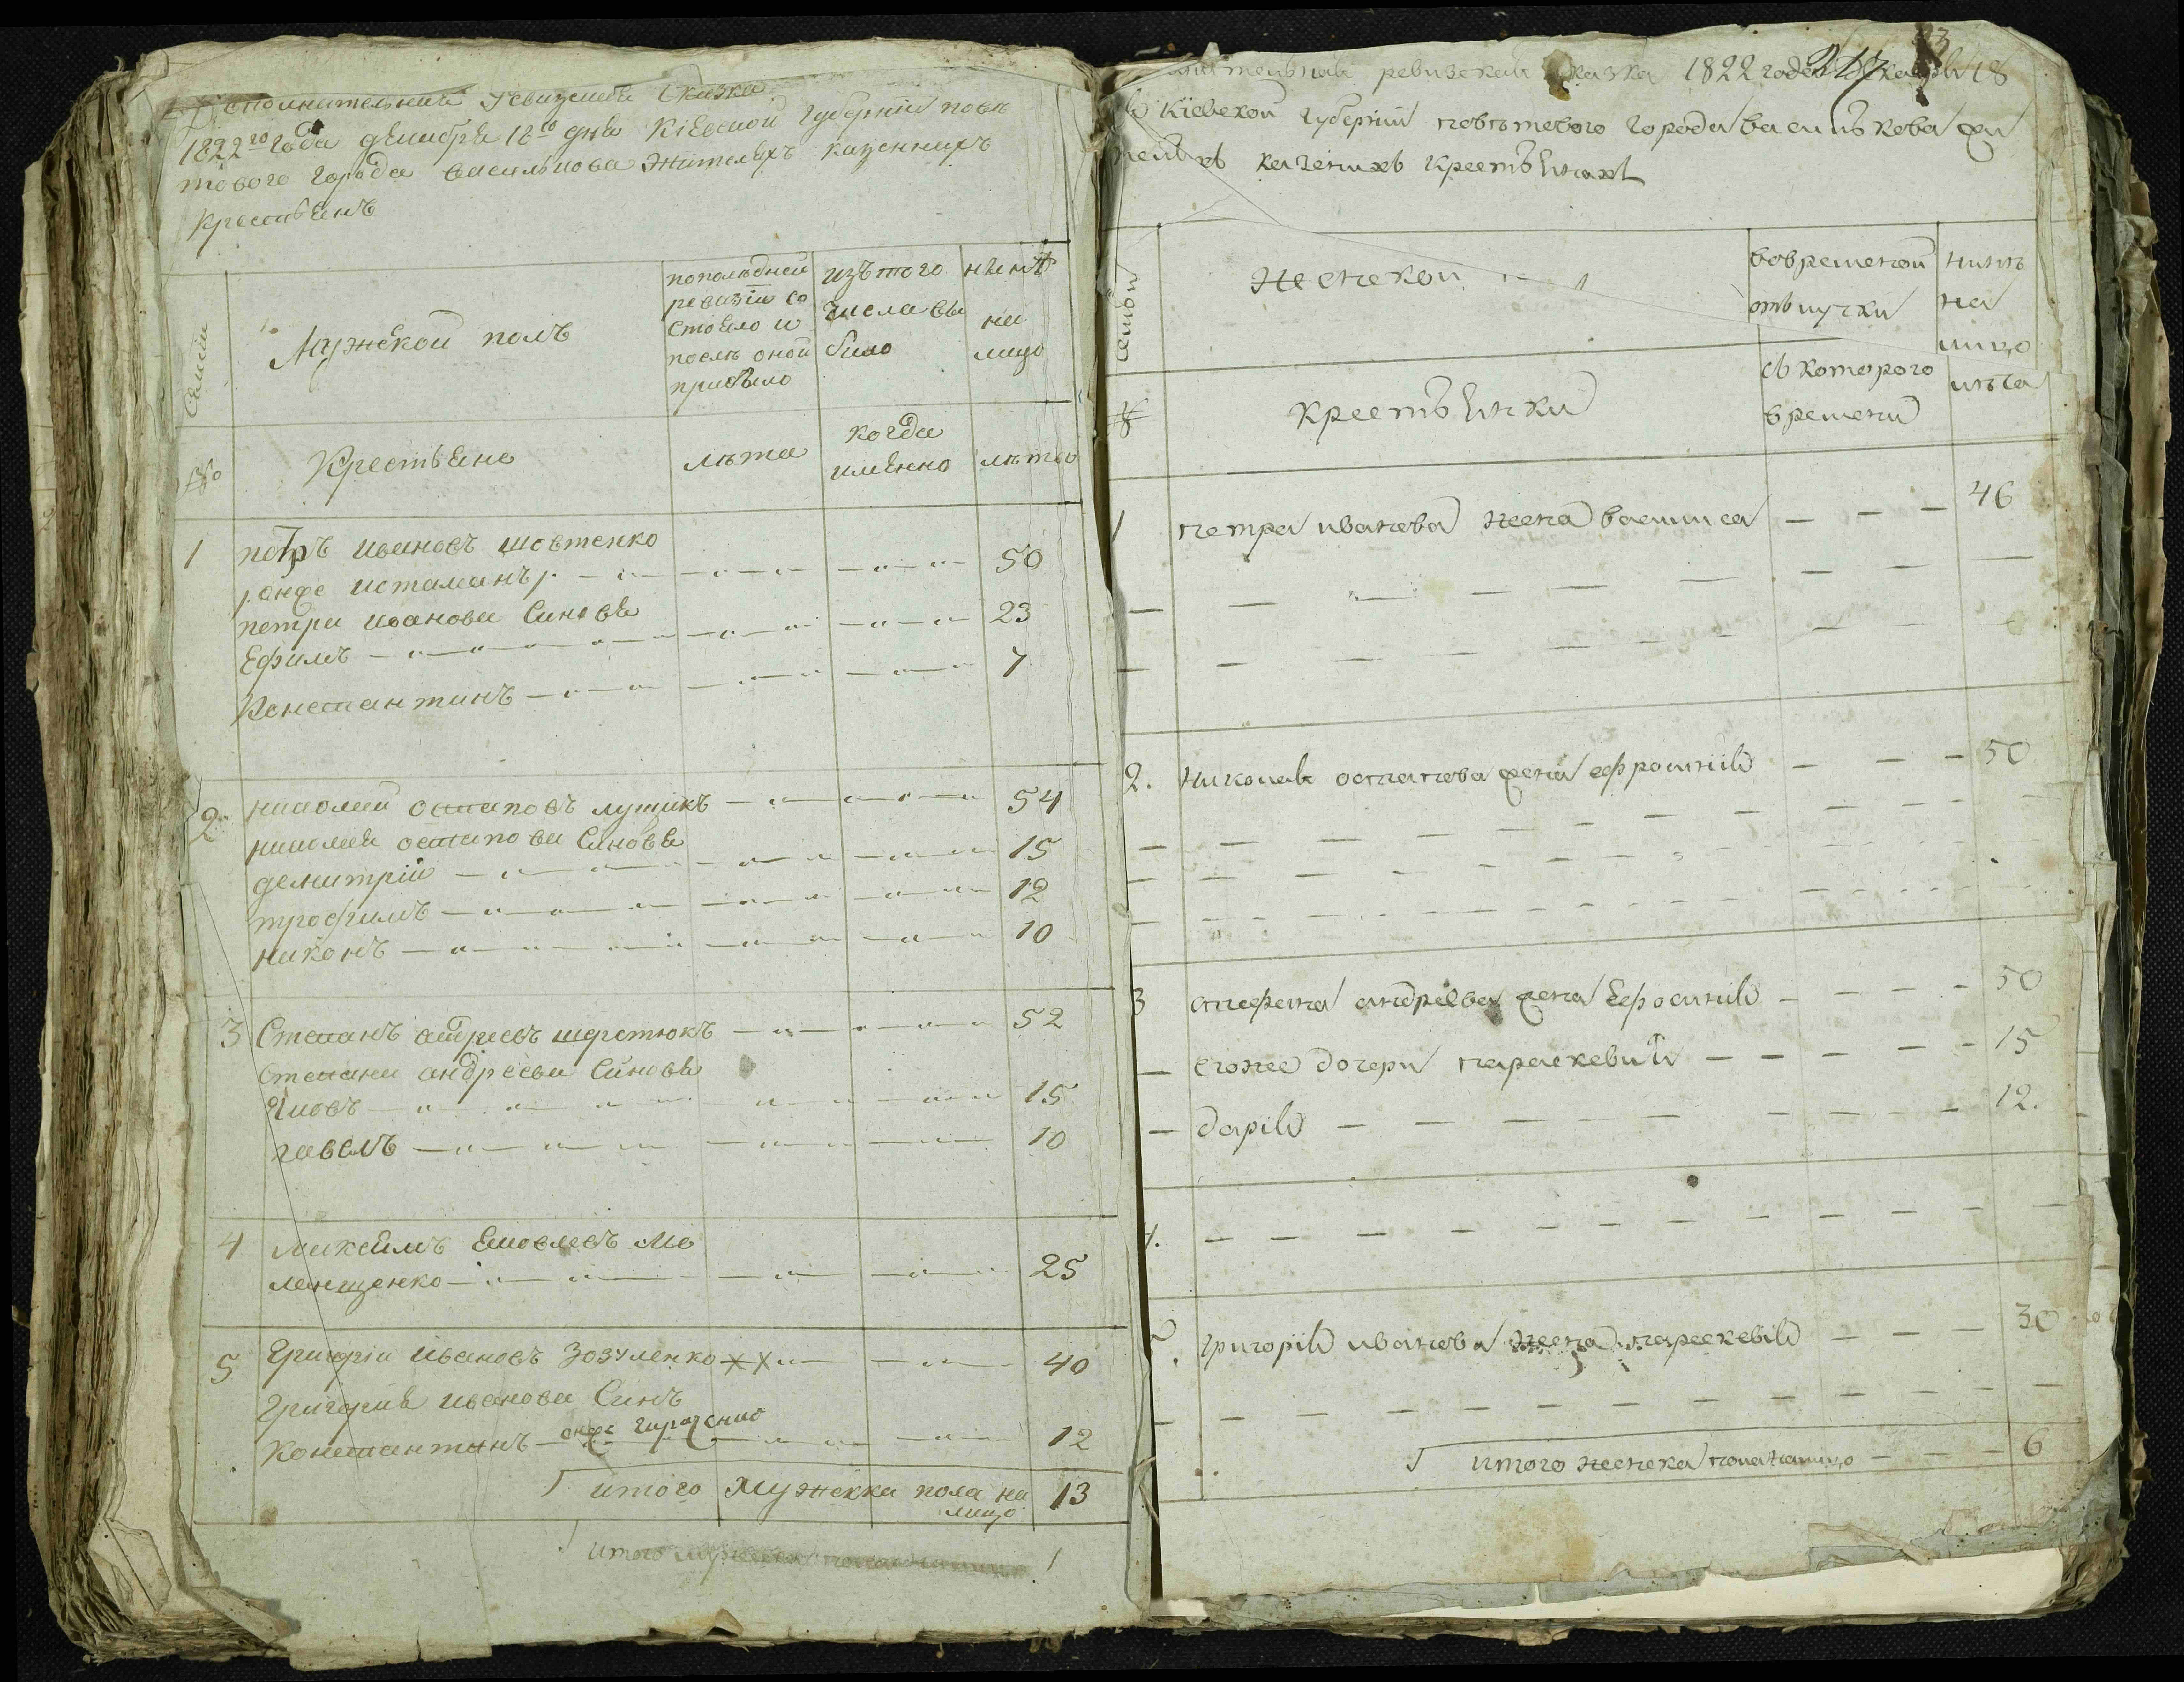 Дополнительная ревизская сказка
1822го года декабря 18го дня Кіевской губерніи повѣ
тового города василькова жителехъ казенныхъ
Крестьянъ
Семьи
Мужской полъ
попослѣдней
ревизіи со
стояло и
послѣ оной
прибыло
изъ того
числа вы
было
нынѣ
на
лицо
№
Крестьяне
лѣта
когда
именно
лѣта
1
петръ ивановъ шовтенко
онже истаманъ
50
петра иванова Синовья
Ефимъ
23
Константинъ
7
2
николай остаповъ лущикъ
54
николая остапова Синовья
демитрій
15
трофимъ
12
никонъ
10
3
Степанъ андреевъ шерстюкъ
52
степана андреева Синовья
Яковъ
15
павелъ
10
4
максимъ Яковлевъ ме
ленщенко
25
5
Григорій ивановъ Зозуленко
40
Григорія иванова Синъ
Константинъ
онже
12
итого мужска пола на
лицо
13
итого мужеска пола налицо
ревизская сказка 1822 года декабря 18
Кіевской губерніи повѣтового города василькова жи
телехъ казеныхъ крестьянахъ
семьи
женской
вовременой
отълучки
нинѣ
на
лицо
№
крестьянки
съ которого
времени
лѣта
1
петра иванова жена василиса
46
2.
николая остапова жена ефросинія
50
3
стефана андреева жена Ефросинія
50
егоже дочери параскевия
15
дарія
12.
4.
5.
григорія иванова жена параскевія
30
итого женска пола налицо
6